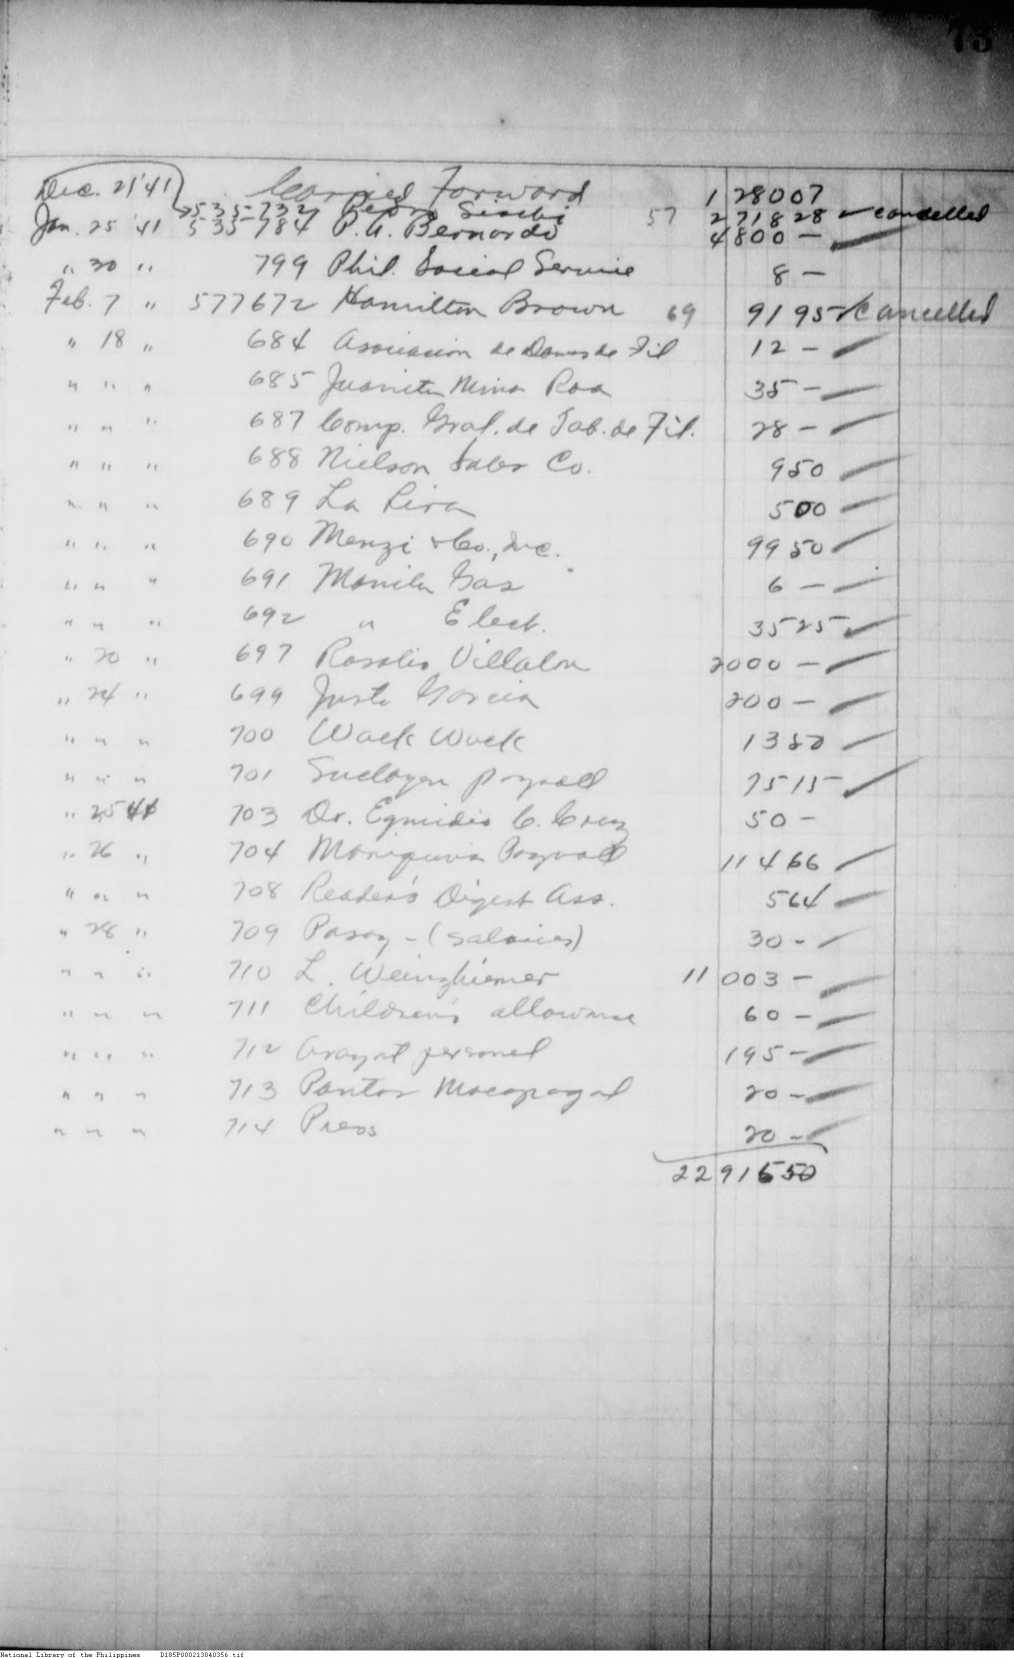 73
Carried Forward 1 280 07
Dec. 21 '41 535732 Pedro 2 718 28 cancelled
Jan. 25 '41 535784 P. A. Bernardo 57 4 800 —
" 30 " 799 Phil. Social Service 8 —
Feb. 7 " 577672 Hamilton Brown 69 91 95 Cancelled
" 18 " 684 Asociacion de Damas de Fil 12 —
" " " 685 Juanita Mina Roa 35 —
" " " 687 Comp. Gral. de Tab. de Fil. 28 —
" " " 688 Nielson Sales Co. 9 50
" " " 689 La 5 00
" " " 690 Menzi & Co., Inc. 99 50
" " " 691 Manila Gas 6 —
" " " 692 " Elect. 35 25
" 20 " 697 Rosalio Villalon 2000 —
" 24 " 699 Justo Garcia 200 —
" " " 700 Wack Wack 13 50
" " " 701 payroll 75 15
" 25 41 703 Dr. Egmidio C. Cruz 50 —
" 26 " 704 Mariquina Payroll 114 66
" " " 708 Reader's Digest Ass. 5 64
" " 28 " 709 Pasay - (salaries) 30 -
" " " 710 L. Weinzhiemer 11 003 —
" " " 711 Children's allowance 60 —
" " " 712 Arayat personel 195 -
" " " 713 Pastor Macapagal 20 -
" " " 714 Press 20 -
22 916 50
National Library of the Philippines D185P000213040356.tif